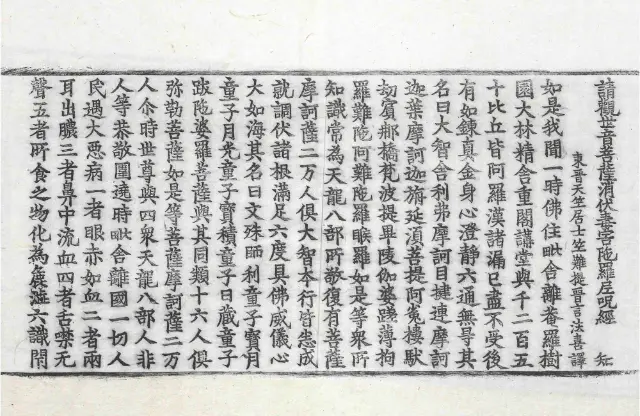 請觀世音菩薩消伏毒害陀羅尼呪經 知
東晉天竺居士竺難提晉言法喜譯
如是我聞一時佛住毗舍離菴羅樹
園大林精舍重閣講堂與千二百五
十比丘皆阿羅漢諸漏已盡不受後
有如鍊真金身心澄靜六通無㝵其
名曰大智舍利弗摩訶目揵連摩訶
迦葉摩訶迦旃延須菩提阿㝹樓馱
劫賓那憍梵波提畢陵伽婆蹉薄拘
羅難陀阿難陀羅睺羅如是等衆所
知識常為天龍八部所敬復有菩薩
摩訶薩二万人俱大智本行皆悉成
就調伏諸根滿足六度具佛威儀心
大如海其名曰文殊師利童子寶月
童子月光童子寶積童子日藏童子
跋陀婆羅菩薩與其同類十六人俱
弥勒菩薩如是等菩薩摩訶薩二万
人尒時世尊與四衆天龍八部人非
人等恭敬圍遶時毗舍離國一切人
民遇大惡病一者眼赤如血二者兩
耳出膿三者鼻中流血四者舌噤无
聲五者所食之物化為麁澁六識閇